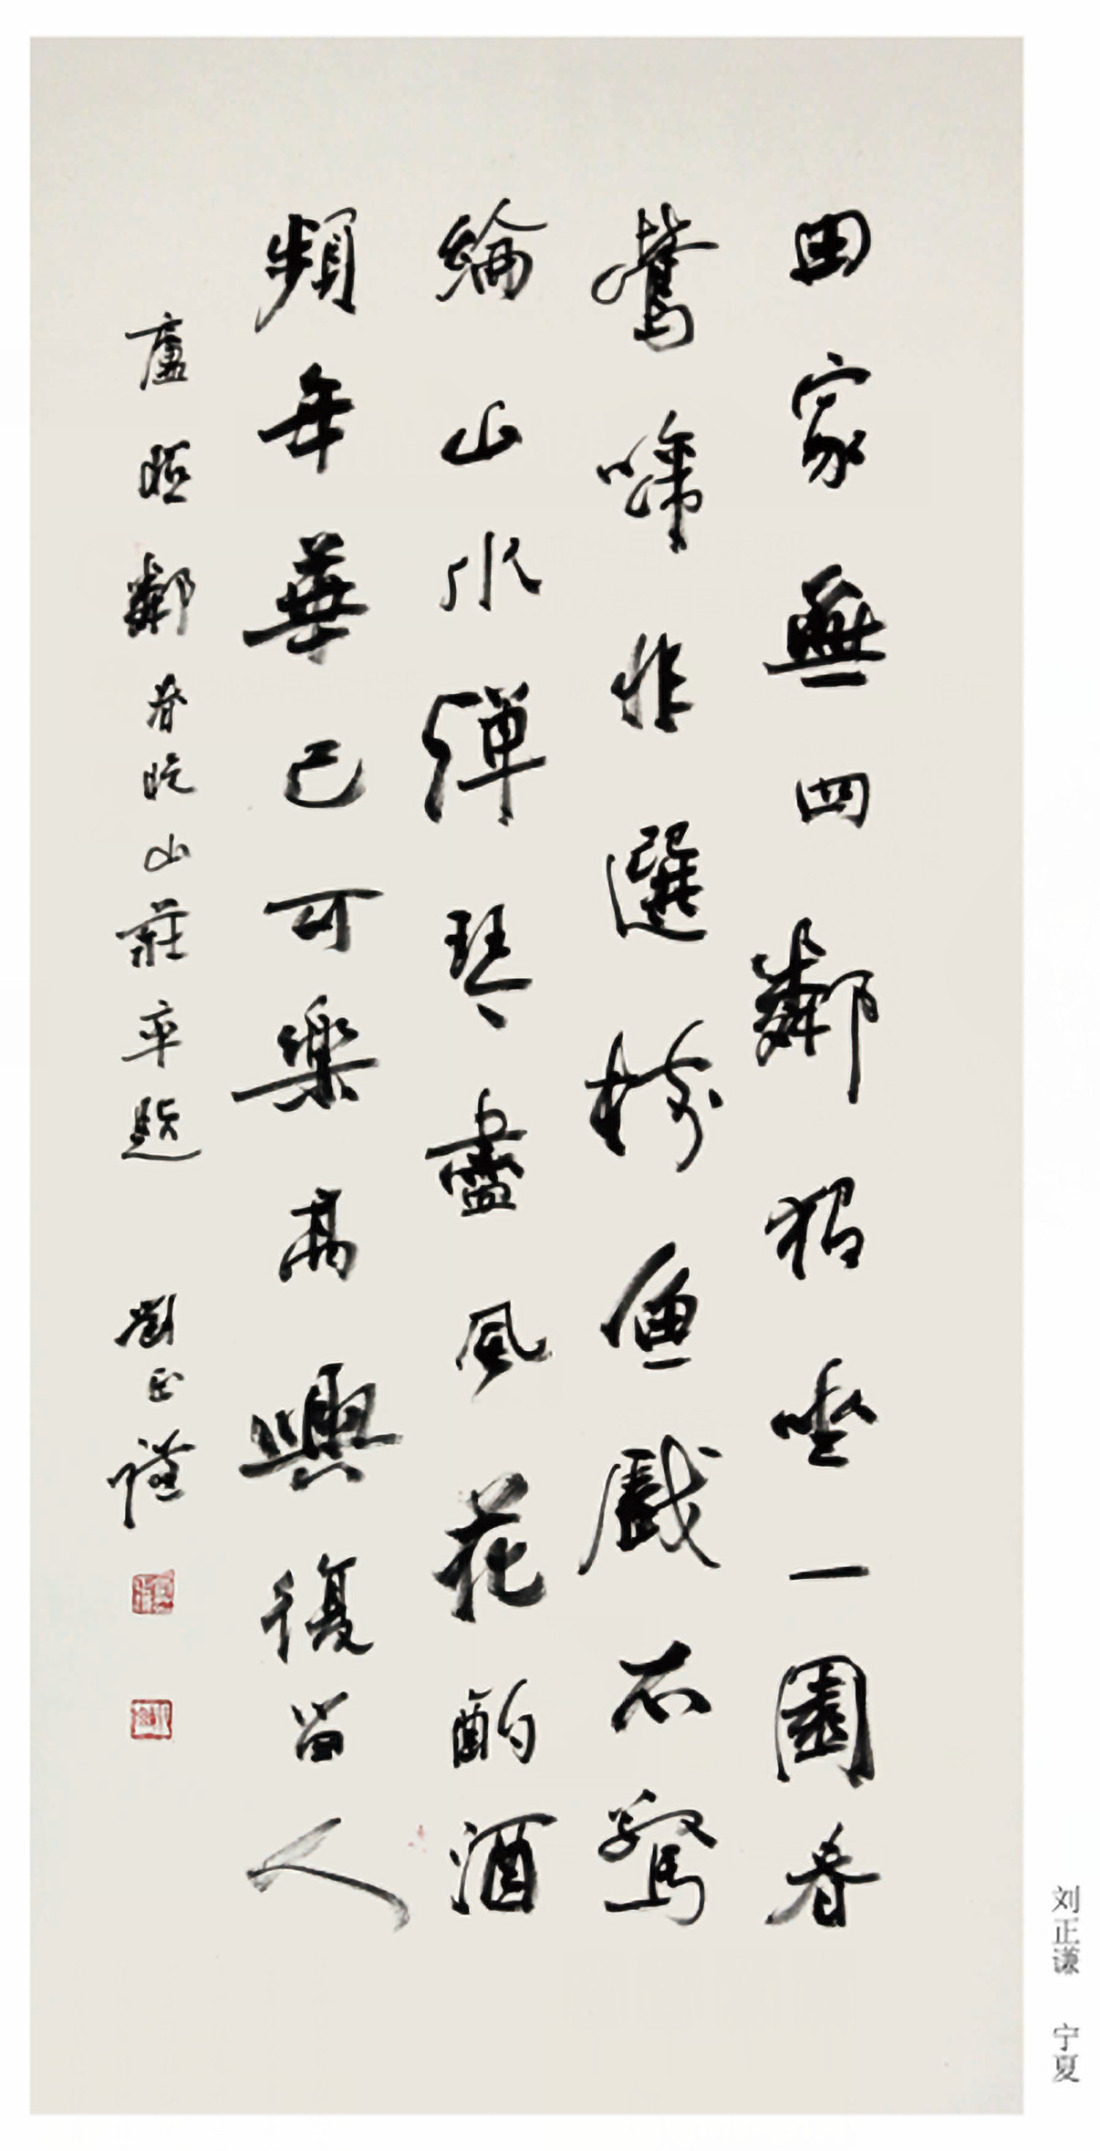 田家無四鄰獨坐一園春
鶯啼非選樹魚戲不驚
綸山水彈琴盡風花酌酒
頻年華已可樂高興復留人
盧照鄰春晚山莊率題 劉正謙
刘正谦 宁夏